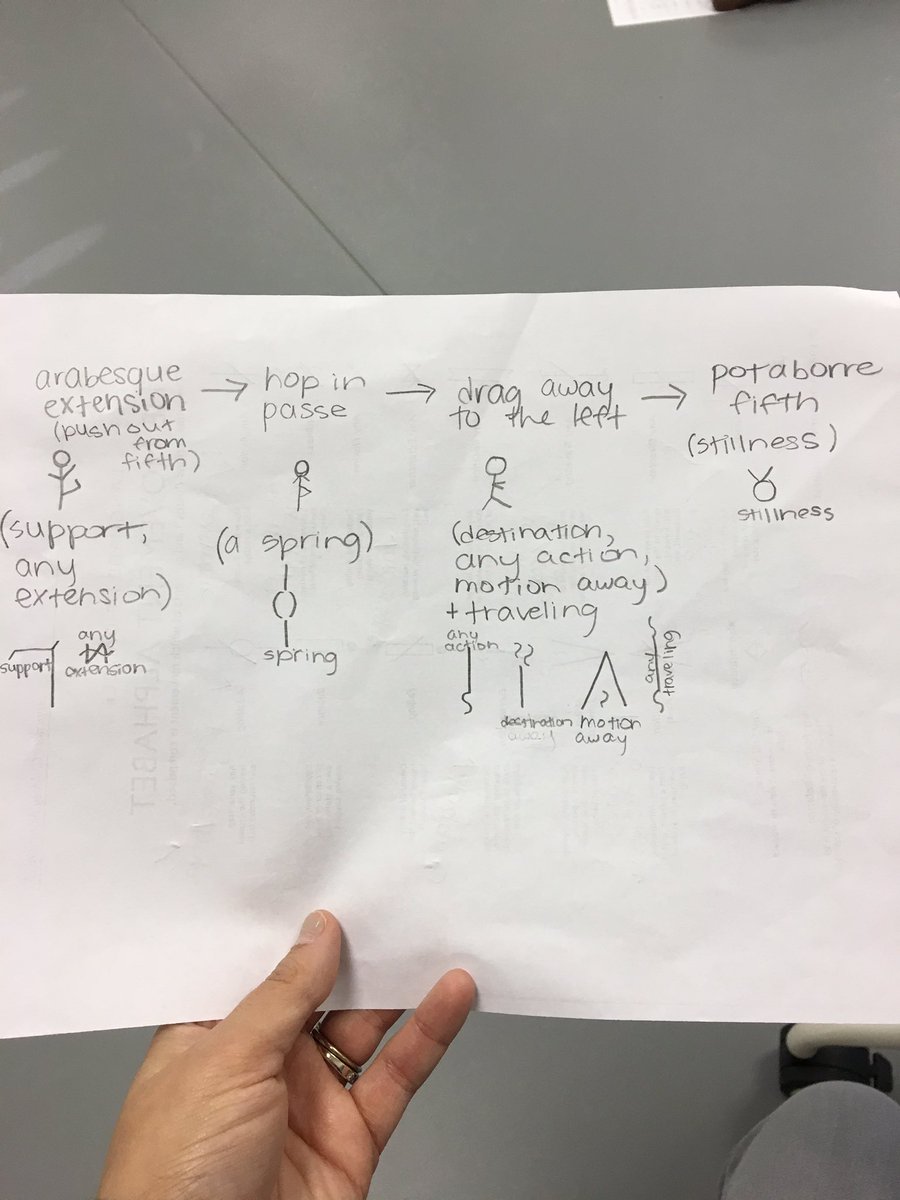 arabesque
extension
(push out
from
fifth)
(support,
any
extension)
support
any
extension
hop in
passe
(a spring)
spring
drag away
to the left
(destination,
any action,
motion away)
+ traveling
any
action
destination
away
motion
away
any
traveling
potaborre
fifth
(stillness)
stillness
ALPHABET